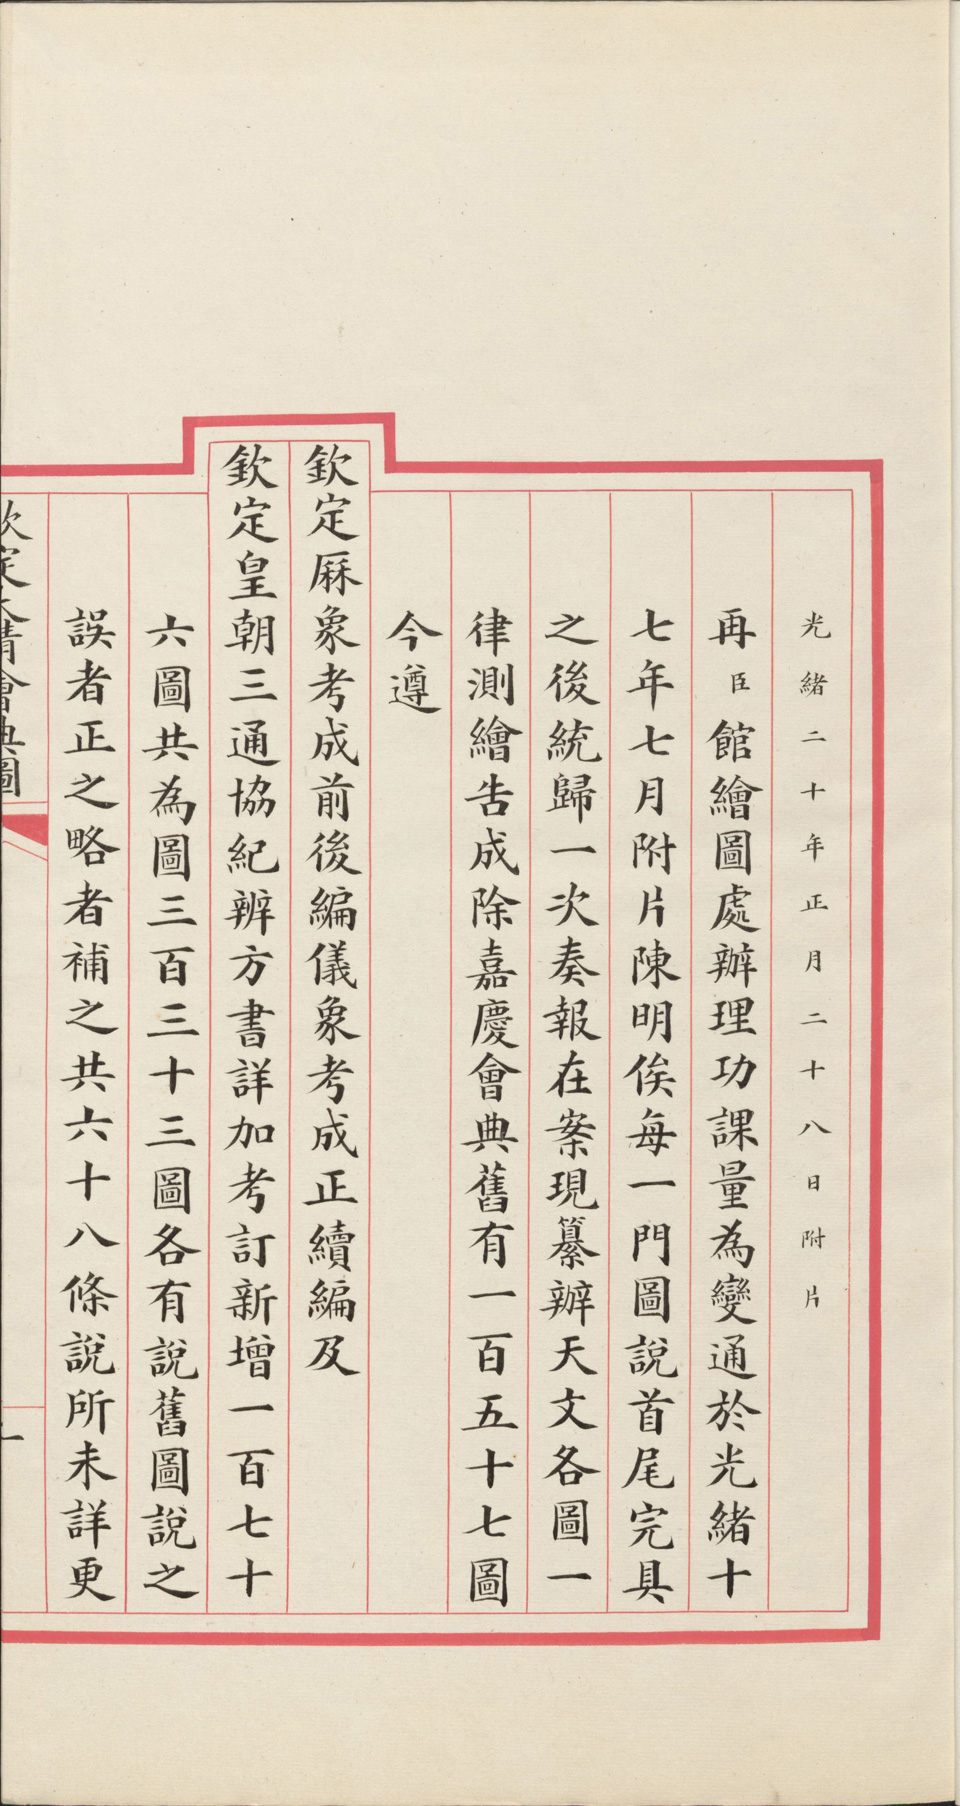 光緒二十年正月二十八日附片
再臣館繪圖處辦理功課量為變通於光緒十
七年七月附片陳明俟每一門圖說首尾完具
之後統歸一次奏報在案現纂辦天文各圖一
律測繪告成除嘉慶會典舊有一百五十七圖
今遵
欽定厤象考成前後編儀象考成正續編及
欽定皇朝三通協紀辨方書詳加考訂新增一百七十
六圖共為圖三百三十三圖各有說舊圖說之
誤者正之略者補之共六十八條說所未詳更
欽定大清會典圖
一